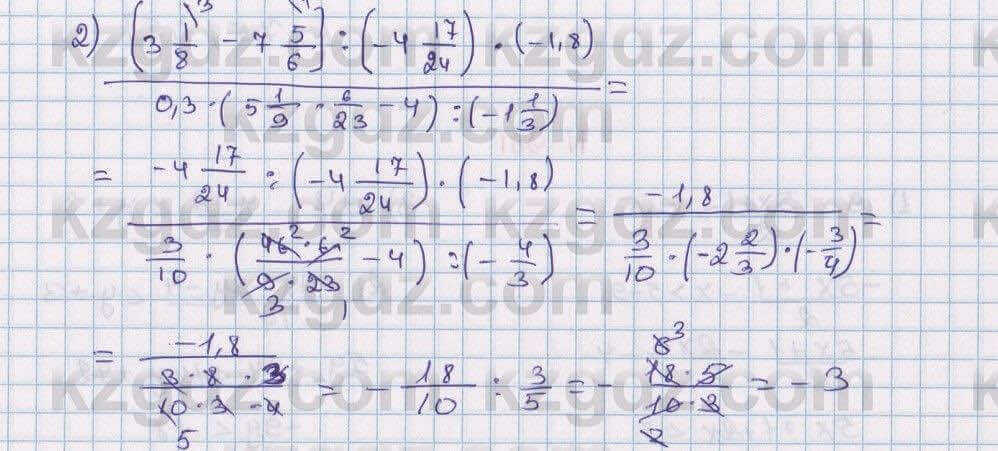 2) (3 1/8 - 7 5/6) : (-4 17/24) · (-1,8)
0,3 · (5 1/9 · 6/23 - 4) : (-1 1/3) =
= -4 17/24 : (-4 17/24) · (-1,8)
3/10 · (46² · 6² / 9 · 23 - 4) : (-4/3)
3 1
= -1,8
3/10 · (-2 2/3) · (-3/4) =
= -1,8
3 · 8 · 3
10 · 3 · 4
5
= - 18/10 : 3/5 = - 18 · 5 / 10 · 3 = -3
6 3
2
kzgdz.com